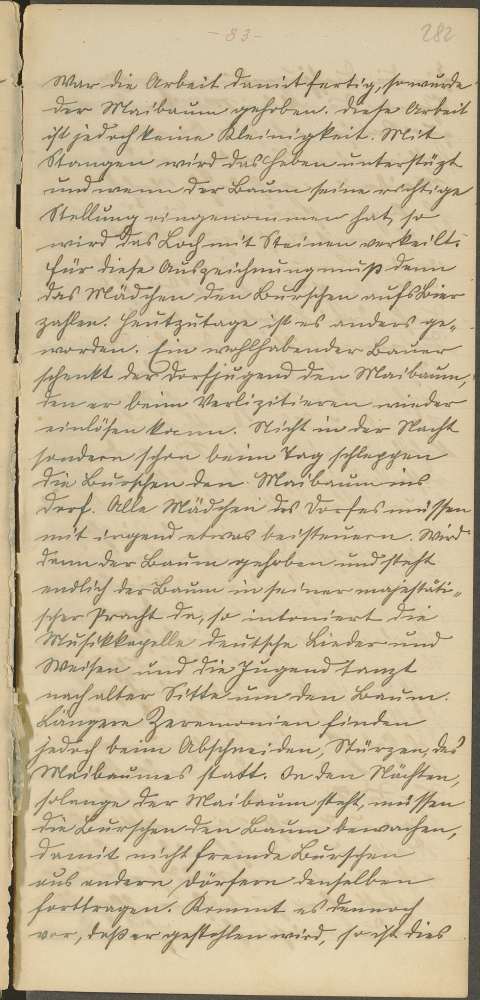 - 83 -
282
War die Arbeit damit fertig, so wurde
der Maibaum gehoben. Diese Arbeit
ist jedoch keine Kleinigkeit. Mit
Stangen wird das Heben unterstüzt
und wenn der Baum seine richtige
Stellung eingenommen hat, so
wird das Loch mit Steinen verkeilt.
Für diese Auszeichnung muß dann
das Mädchen den Burschen aufs Bier
zahlen. Heutzutage ist es anders ge„
worden. Ein wohlhabender Bauer
schenkt der Dorfjugend den Maibaum,
den er beim Verlizitieren wieder
einlösen kann. Nicht in der Nacht
sondern schon beim Tag schleppen
die Burschen den Maibaum ins
Dorf. Alle Mädchen des Dorfes müssen
mit irgend etwas beisteuern. Wird
dann der Baum gehoben und steht
endlich der Baum in seiner majestäti„
scher Pracht da, so intoniert die
Musikkapelle deutsche Lieder und
Weisen und die Jugend tanzt
nach alter Sitte um den Baum.
Längere Zeremonien finden
jedoch beim Abschneiden, Stürzen, des
Maibaumes statt. In den Nächten,
solange der Maibaum steht, müssen
die Burschen den Baum bewachen,
damit nicht fremde Burschen
aus andern Dörfern denselben
forttragen. Kommt es dennoch
vor, daß er gestohlen wird, so ist dies